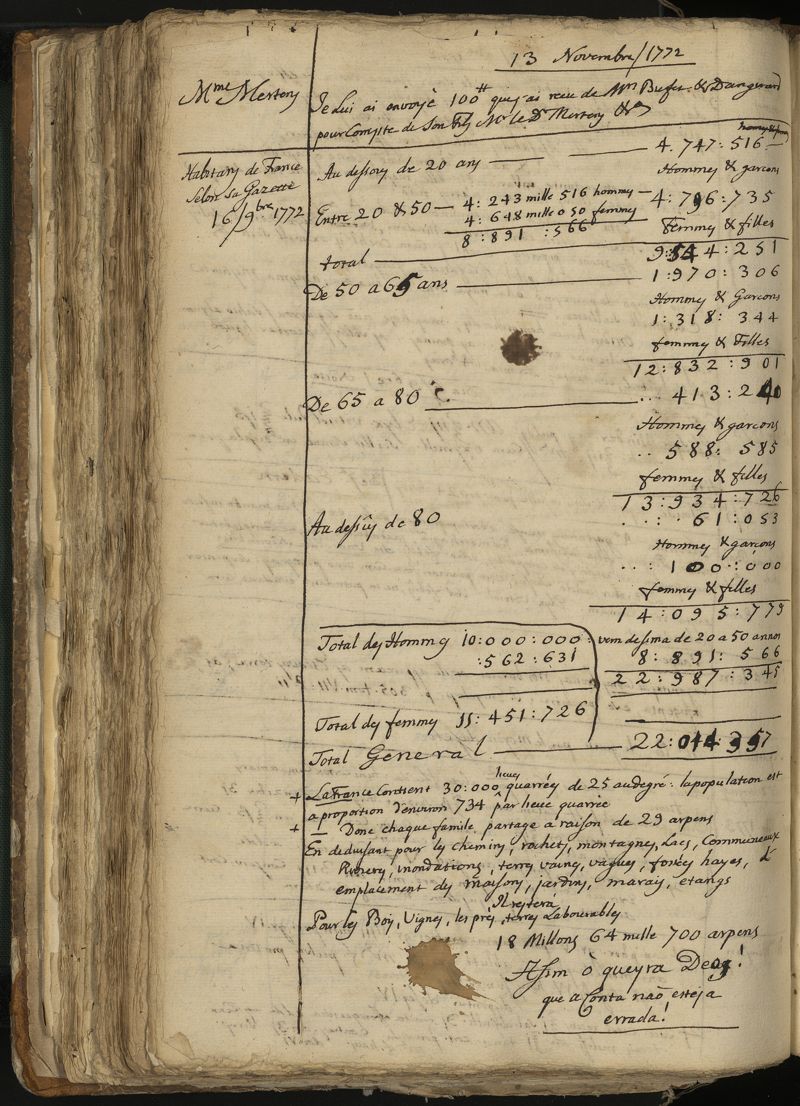 13 Novembre/1772
Mme Mertens
Je Lui ai envoyé 100 # que j'ai receu de Mrs Bufet & Dangirard
pour Compte de Son fils Mr le Dr Mertens &a
Habitans de France
Selon sa Gazette
16/9bre 1772
Au dessous de 20 ans — 4. 747: 516 —
hommes & garçons
Hommes & garcons
Entre 20 & 50 — 4: 243 mille 516 hommes — 4: 796: 735
4: 648 mille 050 femmes
Femmes & filles
8: 891: 566
total — 9: 544: 251
De 50 a 65 ans — 1: 970: 306
Hommes & Garcons
1: 318: 344
femmes & Filles
12: 832: 901
De 65 a 80 — .. 413: 240
Hommes & garcons
.. 588: 585
femmes & filles
13: 934: 726
Au dessus de 80
. . : . 61: 053
Hommes & garçons
. . : 100: 000
femmes & filles
14: 095: 779
Total des Hommes 10: 000: 000: vem de sima de 20 a 50 annos
: 562: 631 8: 891: 566
22: 987: 345
Total des femmes 11: 451: 726
Total General — 22: 014: 357
+ La France Contient 30:000 lieues quarrées de 25 au degré: la population est
a proportion d'environ 734 par lieue quarrée
+ — Donc chaque famile partage a raison de 29 arpens
En deduisant pour les chemins, rochers, montagnes, Lacs, Communeaux
Rivieres, inondations, terres vaines, vagues, fossés hayes, &
emplacement des maisons, jardins, marais, etangs
Il restera
Pour les Bois, Vignes, les prés, terres Labourables
18 Millons 64 mille 700 arpens
Assim ò queyra Deos!
que a Conta naõ esteja
errada!